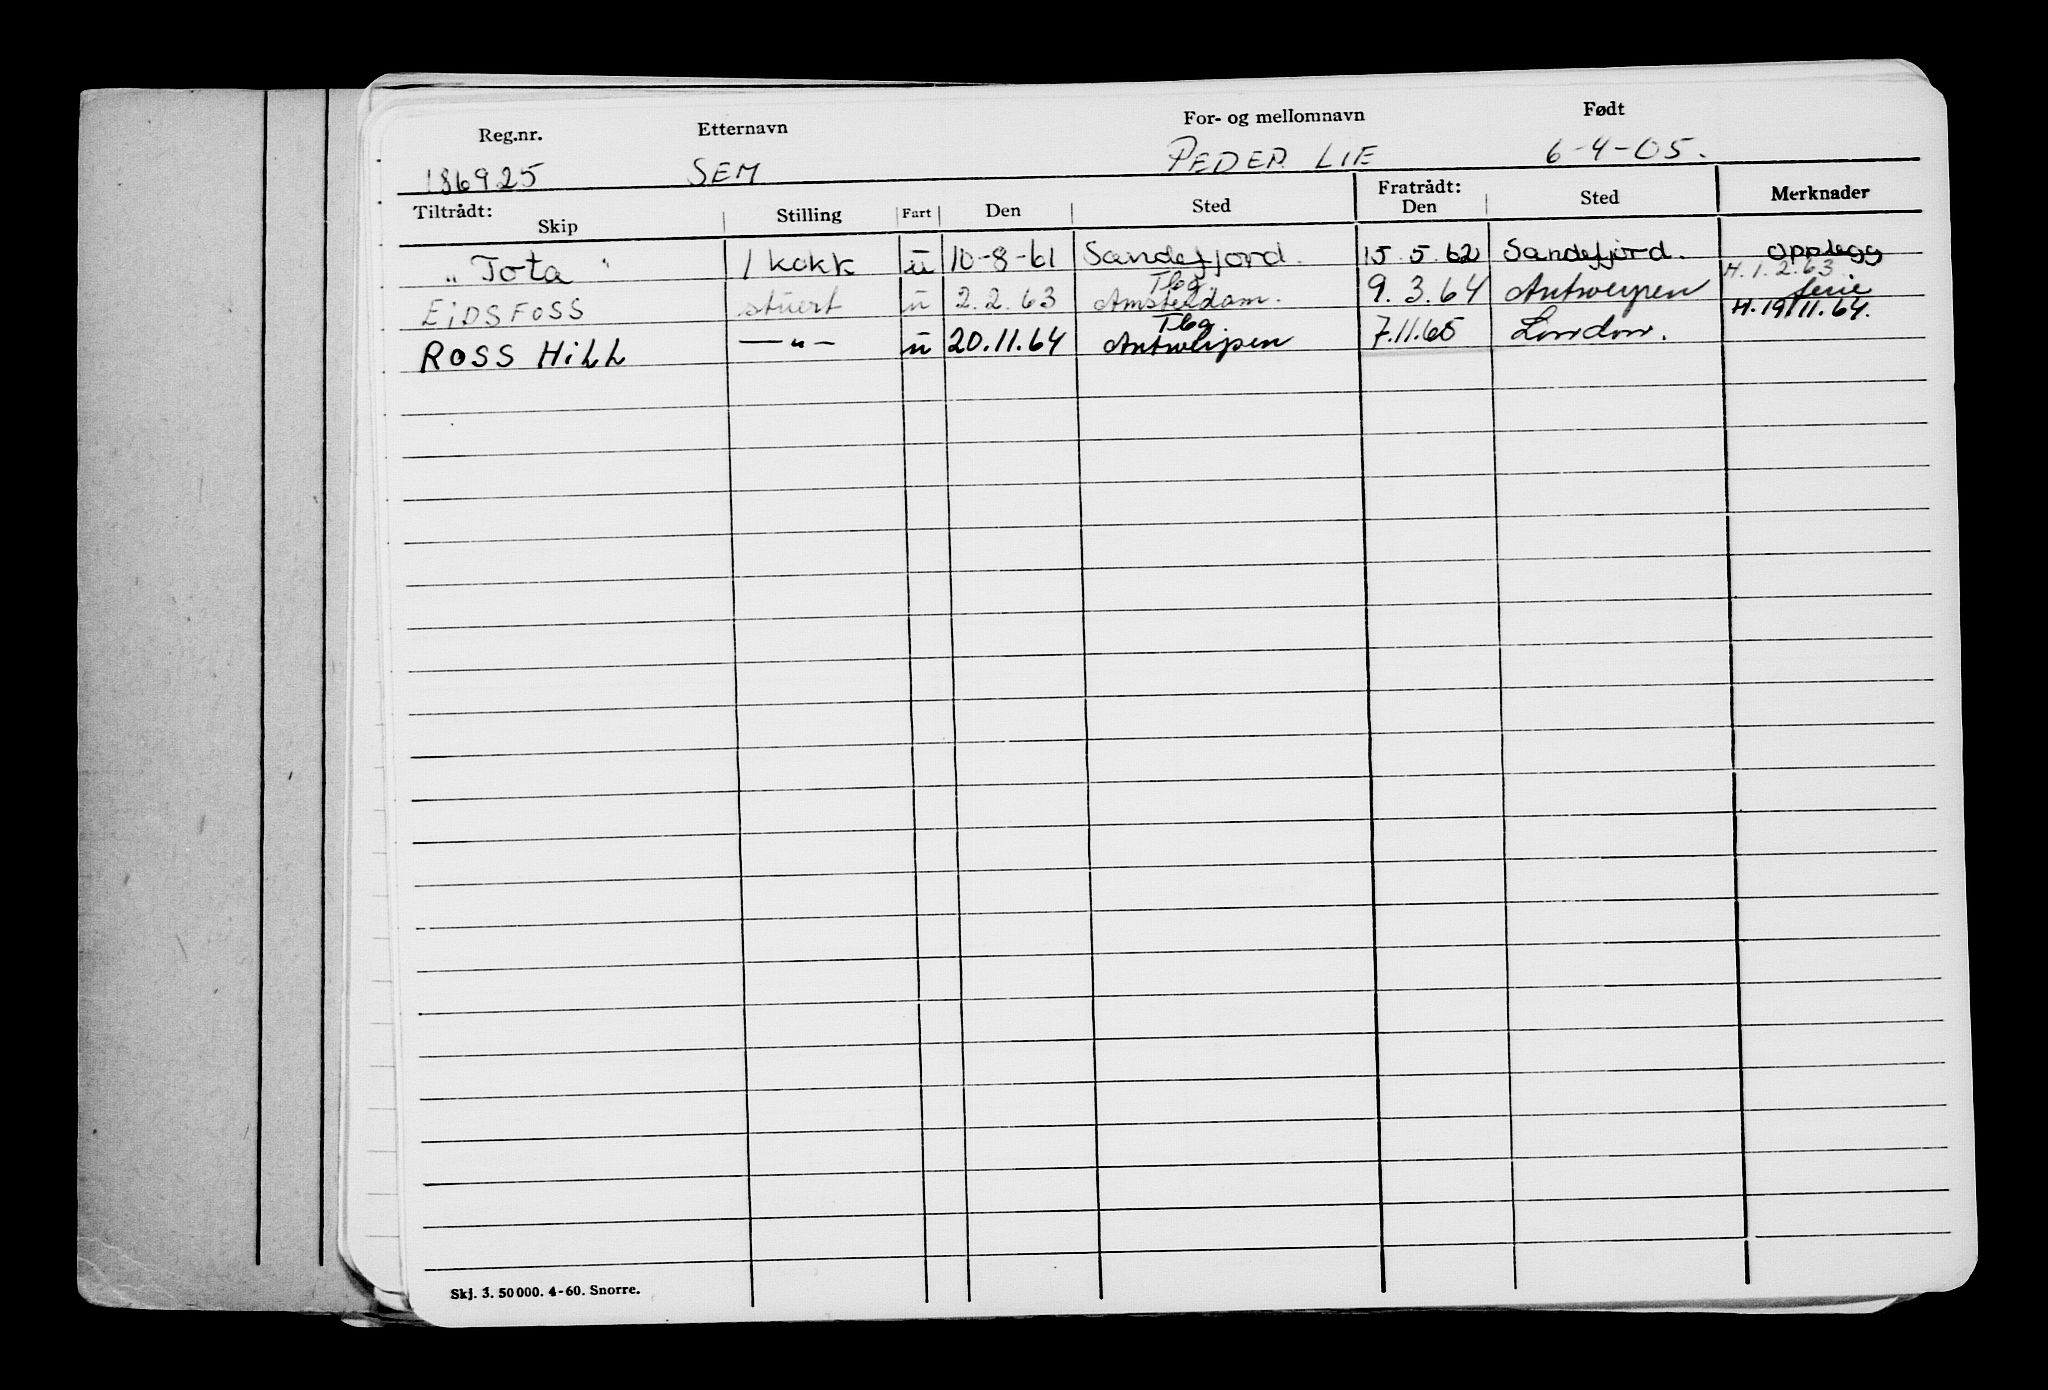 Reg.nr. Etternavn For- og mellomnavn Født
186925 SEM PEDER LIE 6-4-05.
Tiltrådt: Fratrådt:
Skip Stilling Fart Den Sted Den Sted Merknader
„ Tota " 1 kokk u 10-8-61 Sandefjord. 15.5.62 Sandefjord. opplegg
H. 1.2.63
EIDSFOSS stuert u 2.2.63 Tbg Amsterdam. 9.3.64 Antwerpen ferie
H. 19/11.64.
ROSS HILL —"— u 20.11.64 Tbg Antwerpen 7.11.65 London.
Skj. 3. 50 000. 4-60. Snorre.